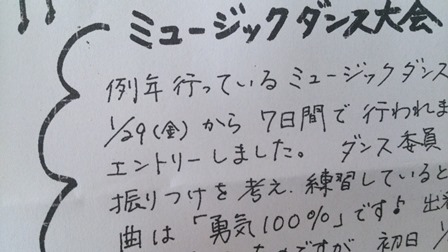 ミュージックダンス大会
例年行っているミュージックダンス
1/29(金)から7日間で行われま
エントリーしました。ダンス委員
振りつけを考え、練習していると
曲は「勇気100%」です♪ 出
ですが 初日